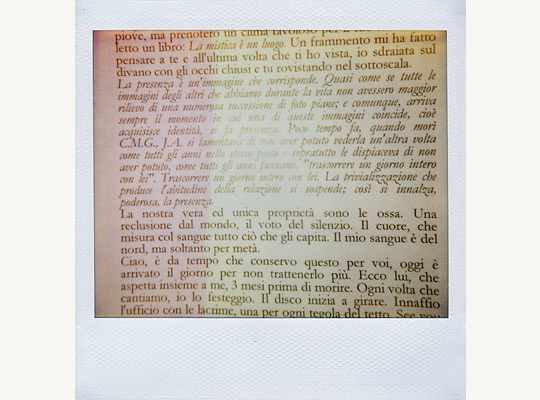 piove, ma prenoterò un clima favoloso per il
letto un libro: La mistica è un luogo. Un frammento mi ha fatto
pensare a te e all'ultima volta che ti ho vista, io sdraiata sul
divano con gli occhi chiusi e tu rovistando nel sottoscala.
La presenza è un'immagine che corrisponde. Quasi come se tutte le
immagini degli altri che abbiamo durante la vita non avessero maggior
rilievo di una numerosa successione di foto piane; e comunque, arriva
sempre il momento in cui una di queste immagini coincide, cioè
acquisisce identità, si fa presenza. Poco tempo fa, quando morì
C.M.G., J.A. si lamentava di non aver potuto vederla un'altra volta
come tutti gli anni nello stesso posto e sopratutto le dispiaceva di non
aver potuto, come tutti gli anni facevano, "trascorrere un giorno intero
con lei". Trascorrere un giorno intero con lei. La trivializzazione che
produce l'abitudine della relazione si sospende; così si innalza,
poderosa, la presenza.
La nostra vera ed unica proprietà sono le ossa. Una
reclusione dal mondo, il voto del silenzio. Il cuore, che
misura col sangue tutto ciò che gli capita. Il mio sangue è del
nord, ma soltanto per metà.
Ciao, è da tempo che conservo questo per voi, oggi è
arrivato il giorno per non trattenerlo più. Ecco lui, che
aspetta insieme a me, 3 mesi prima di morire. Ogni volta che
cantiamo, io lo festeggio. Il disco inizia a girare. Innaffio
l'ufficio con le lacrime, una per ogni tegola del tetto. See you